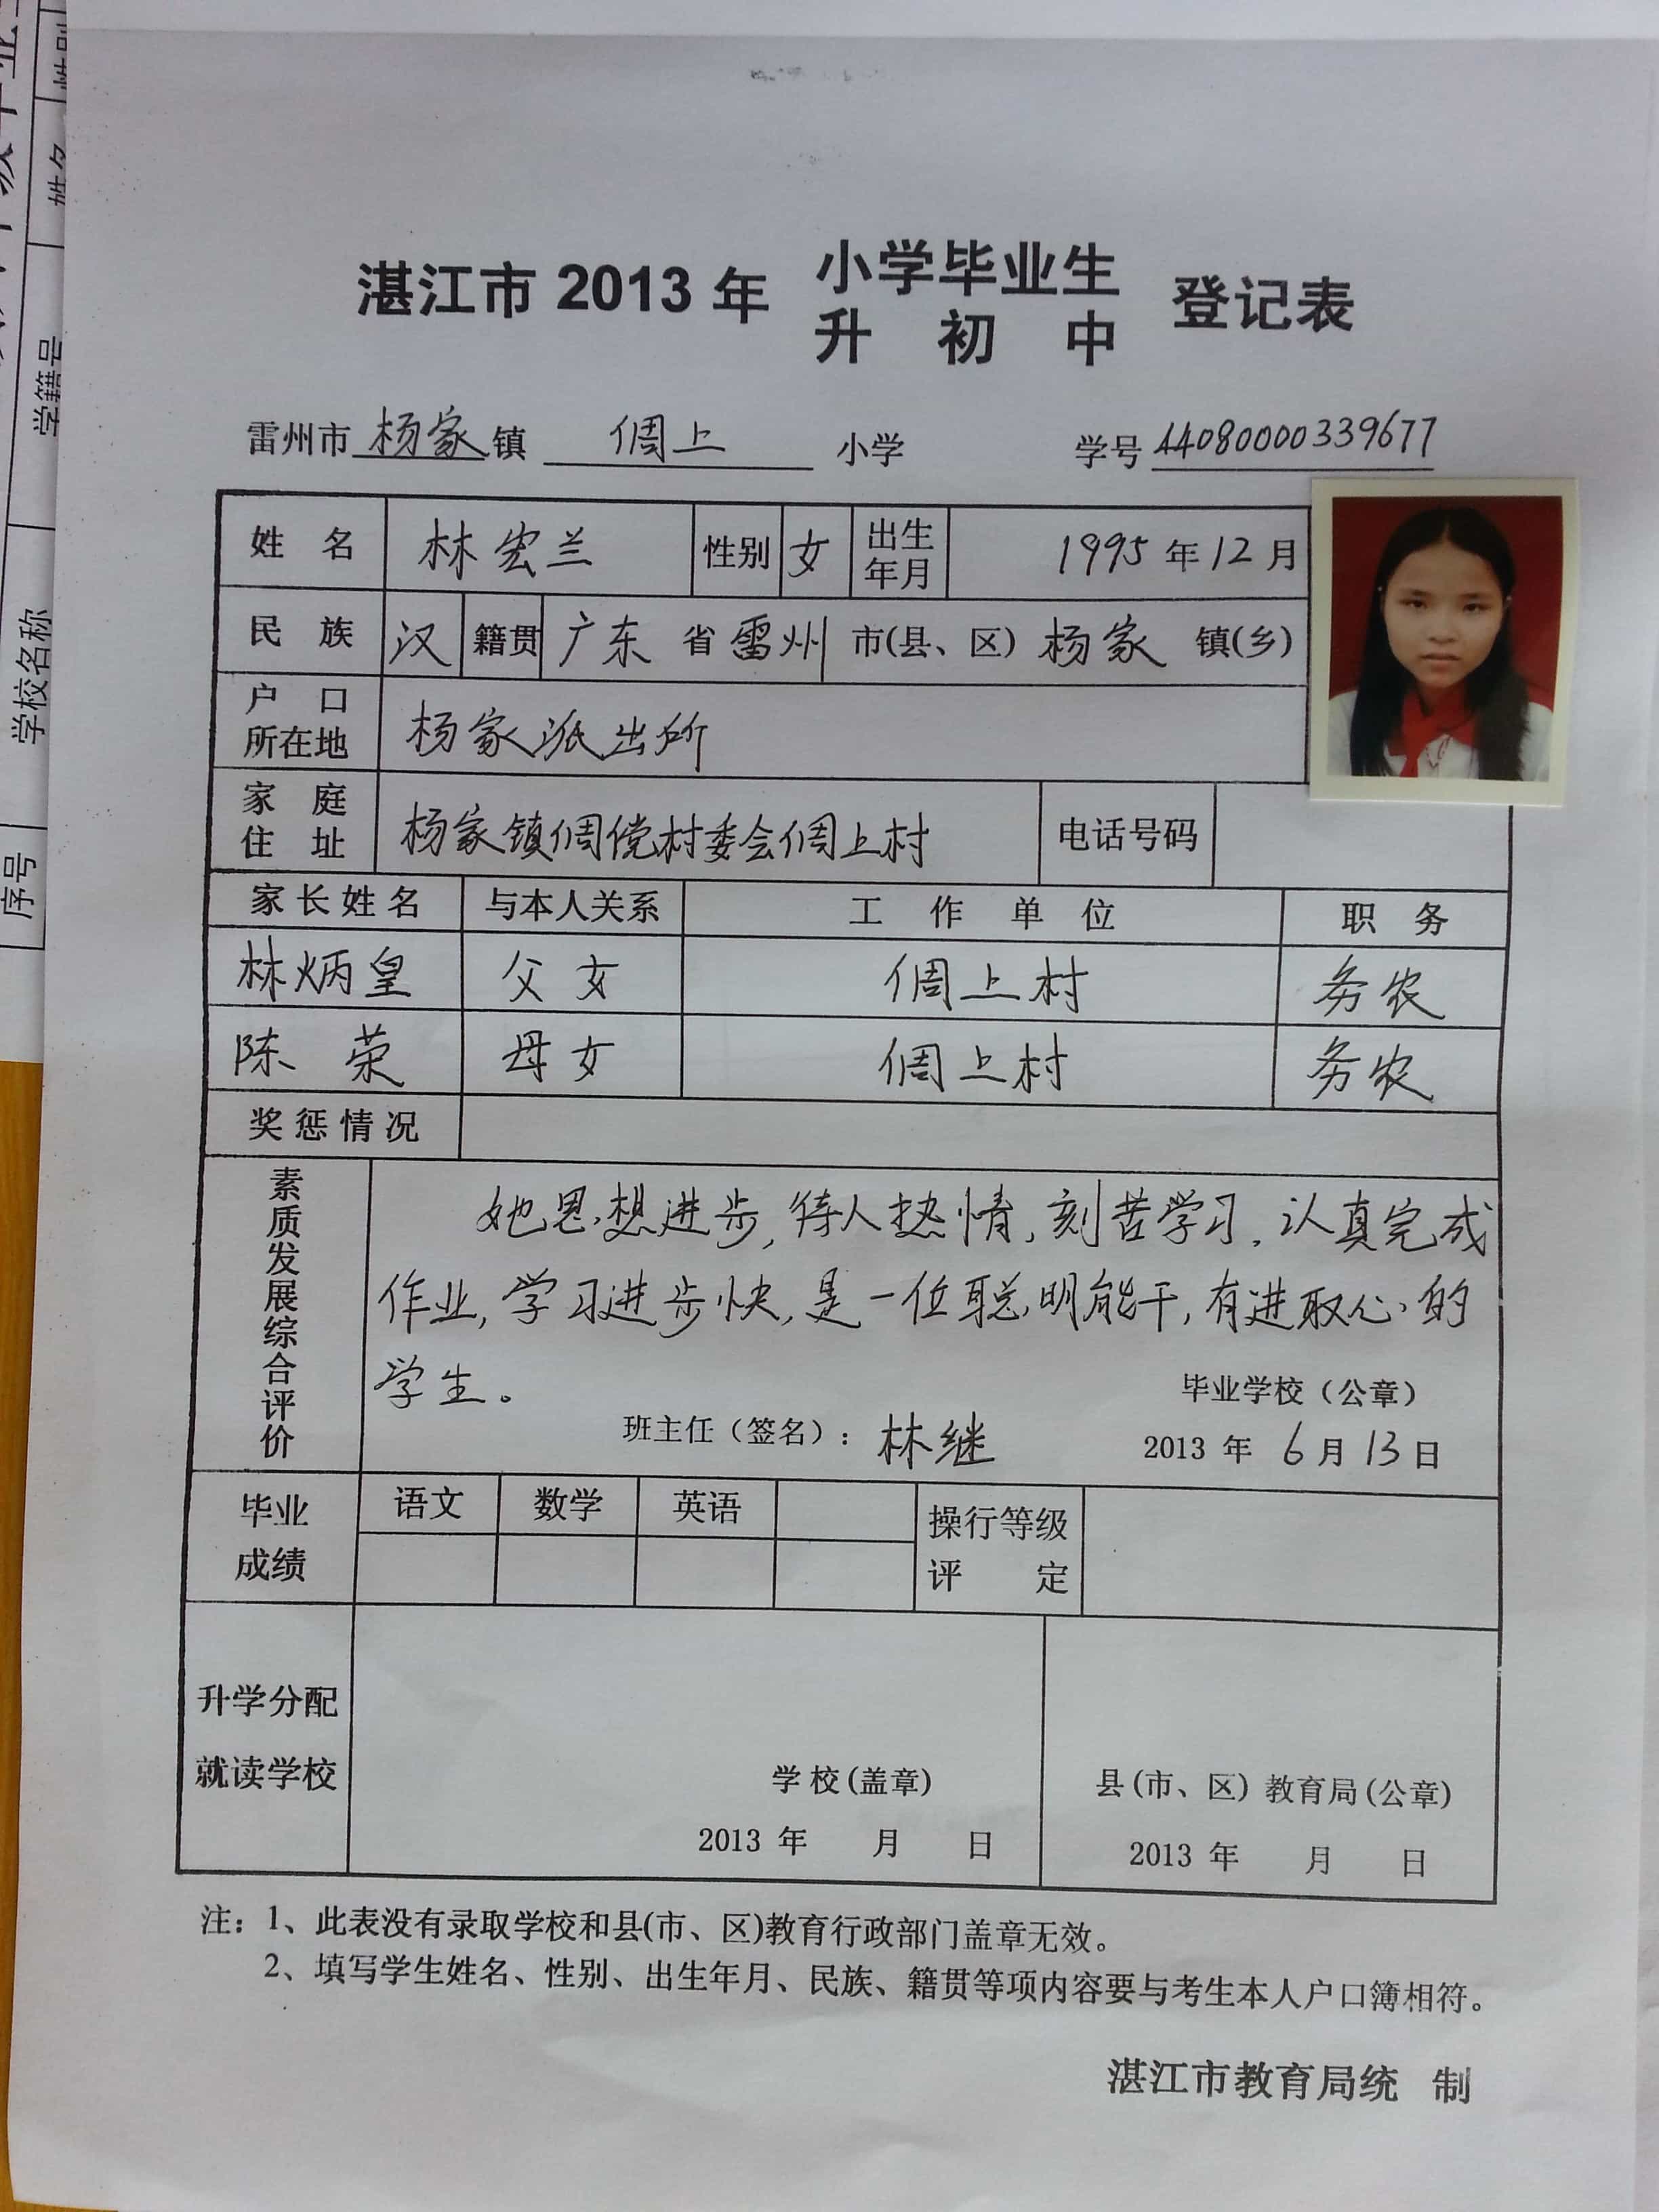 湛江市 2013 年 小学毕业生 登记表
升 初 中
雷州市 杨家 镇 倜上 小学 学号 44080000339677
姓 名 林宏兰 性别 女 出生年月 1995 年 12 月
民 族 汉 籍贯 广东 省 雷州 市(县、区) 杨家 镇(乡)
户 口
所在地 杨家派出所
家 庭
住 址 杨家镇倜傥村委会倜上村 电话号码
家长姓名 与本人关系 工 作 单 位 职 务
林炳皇 父女 倜上村 务农
陈 荣 母女 倜上村 务农
奖惩情况
素质发展综合评价
她思想进步,待人热情,刻苦学习,认真完成
作业,学习进步快,是一位聪明能干,有进取心的
学生。
毕业学校（公章）
班主任（签名）: 林继 2013 年 6 月 13 日
毕业
成绩
语文 数学 英语
操行等级
评 定
升学分配
就读学校
学校(盖章)
2013 年 月 日
县(市、区) 教育局(公章)
2013 年 月 日
注: 1、此表没有录取学校和县(市、区)教育行政部门盖章无效。
2、填写学生姓名、性别、出生年月、民族、籍贯等项内容要与考生本人户口簿相符。
湛江市教育局统 制
序号
学校名称
学籍号
姓名